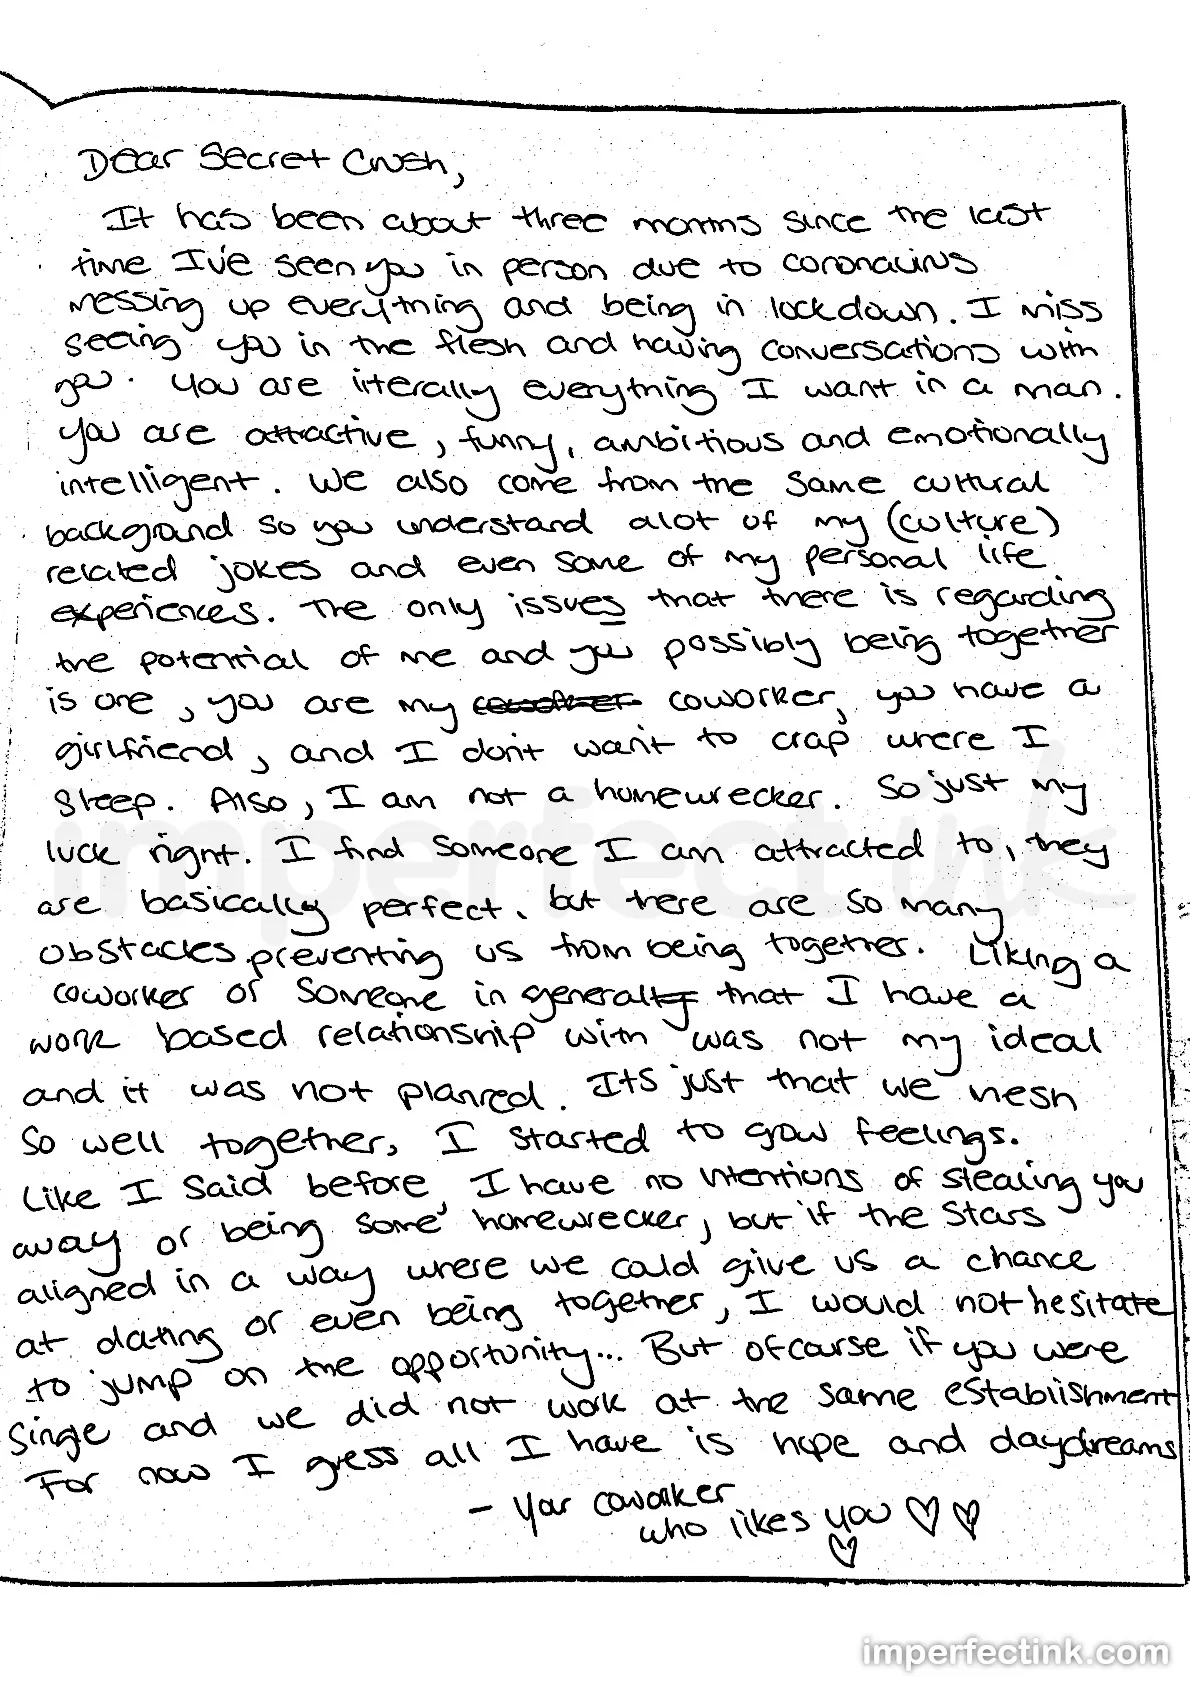 Dear Secret Crush,
It has been about three months since the last
time I've seen you in person due to coronavirus
messing up everything and being in lockdown. I miss
seeing you in the flesh and having conversations with
you. You are literally everything I want in a man.
You are attractive, funny, ambitious and emotionally
intelligent. We also come from the same cultural
background so you understand alot of my (culture)
related jokes and even some of my personal life
experiences. The only issues that there is regarding
the potential of me and you possibly being together
is one, you are my coworker coworker, you have a
girlfriend, and I don't want to crap where I
sleep. Also, I am not a homewrecker. So just my
luck right. I find someone I am attracted to, they
are basically perfect, but there are so many
obstacles preventing us from being together. Liking a
coworker or someone in general that I have a
work based relationship with was not my ideal
and it was not planned. Its just that we mesh
so well together, I started to grow feelings.
Like I said before, I have no intentions of stealing you
away or being some homewrecker, but if the stars
aligned in a way where we could give us a chance
at dating or even being together, I would not hesitate
to jump on the opportunity... But ofcourse if you were
single and we did not work at the same establishment
For now I guess all I have is hope and daydreams
- Your coworker
who likes you ♡ ♡
♡
imperfect ink
imperfectink.com